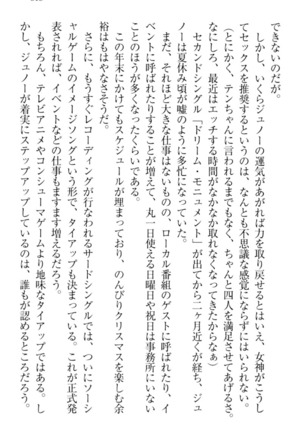 できないのだが。
しかし、いくらジュノーの運気があがれば力を取り戻せるとはいえ、女神がこうし
てセックスを推奨するというのは、なんとも不思議な感覚にならざるをえない。
（とにかく、テンちゃんに言われるまでもなく、ちゃんと四人を満足させてあげるさ。
なにしろ、最近はエッチする時間がなかなか取れなくなってきたからなぁ）
セカンドシングル「ドリーム・モニュメント」が出てから二ヶ月近くが経ち、ジュ
ノーは夏休み頃が嘘のように多忙になっていた。
まだ、それほど大きな仕事はないものの、ローカル番組のゲストに呼ばれたり、イ
ベントに呼ばれたりすることが増えて、丸一日使える日曜日や祝日は事務所にいない
ことのほうが多くなったくらいである。
この年末にかけてもスケジュールが埋まっており、のんびりクリスマスを楽しむ余
裕はもはやなさそうだ。
さらに、もうすぐレコーディングが行なわれるサードシングルでは、ついにソーシ
ャルゲームのイメージソングという形で、タイアップも決まっている。これが正式発
表されれば、イベントなどの仕事もますます増えるだろう。
もちろん、テレビアニメやコンシューマゲームより地味なタイアップではある。し
かし、ジュノーが着実にステップアップしているのは、誰もが認めるところだろう。